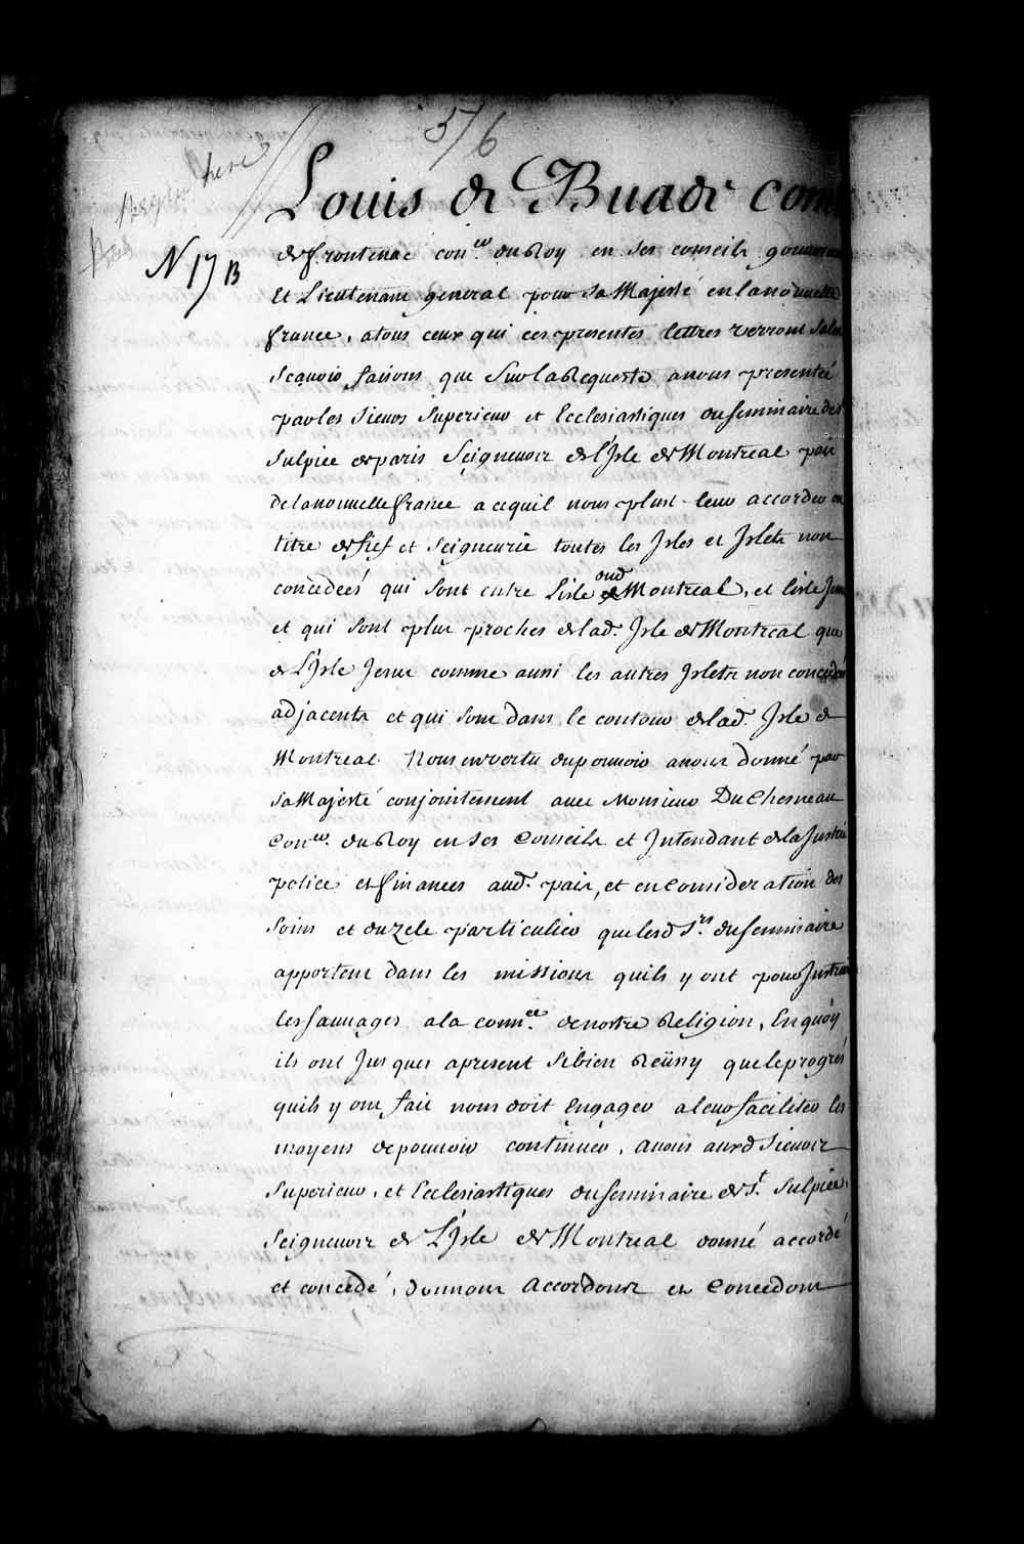 5/6
N 17 B
Louis de Buade com
de frontenac con.er du Roy en ses conseils gouverneur
Et Lieutenant general pour Sa Majesté en la nouvelle
france, a tous ceux qui ces presentes lettres verront Salut
Sçauoir faisons que Sur la Requeste a nous presentée
par les Sieurs Superieur et Ecclesiastiques du seminaire de St
Sulpice de paris Seigneurs de l'Isle de Montreal païs
de la nouuelle france a ce quil nous plust leur accorder en
titre de fief et Seigneurie toutes les Isles et Islets non
concedées qui sont entre L'isle dud Montreal, et l'isle Jesus
et qui sont plus proches de lad. Isle de Montreal que
de L'Isle Jesus comme aussi les autres Islets non concedés
adjacents et qui sont dans le contour de lad. Isle de
Montreal Nous en vertu du pouuoir a nous donné par
Sa Majesté conjointement auec Monsieur DuChesneau
Con.er du Roy en ses Conseils et Intendant de la Justice
police et finances aud. païs, et en consideration des
soins et du zele particulier que lesd S.rs du seminaire
apportent dans les missions quils y ont pour Instruire
les sauuages a la conn.ce de nostre Religion, En quoy
ils ont Jusques apresent si bien Reüssy que le progrés
quils y ont fait nous doit Engager a leur faciliter les
moyens de pouuoir continuer, auons auxd Sieurs
Superieur, et Ecclesiastiques du seminaire de St. Sulpice,
Seigneurs de L'Isle de Montreal donné accordé
et concedé, donnons accordons et Concedons